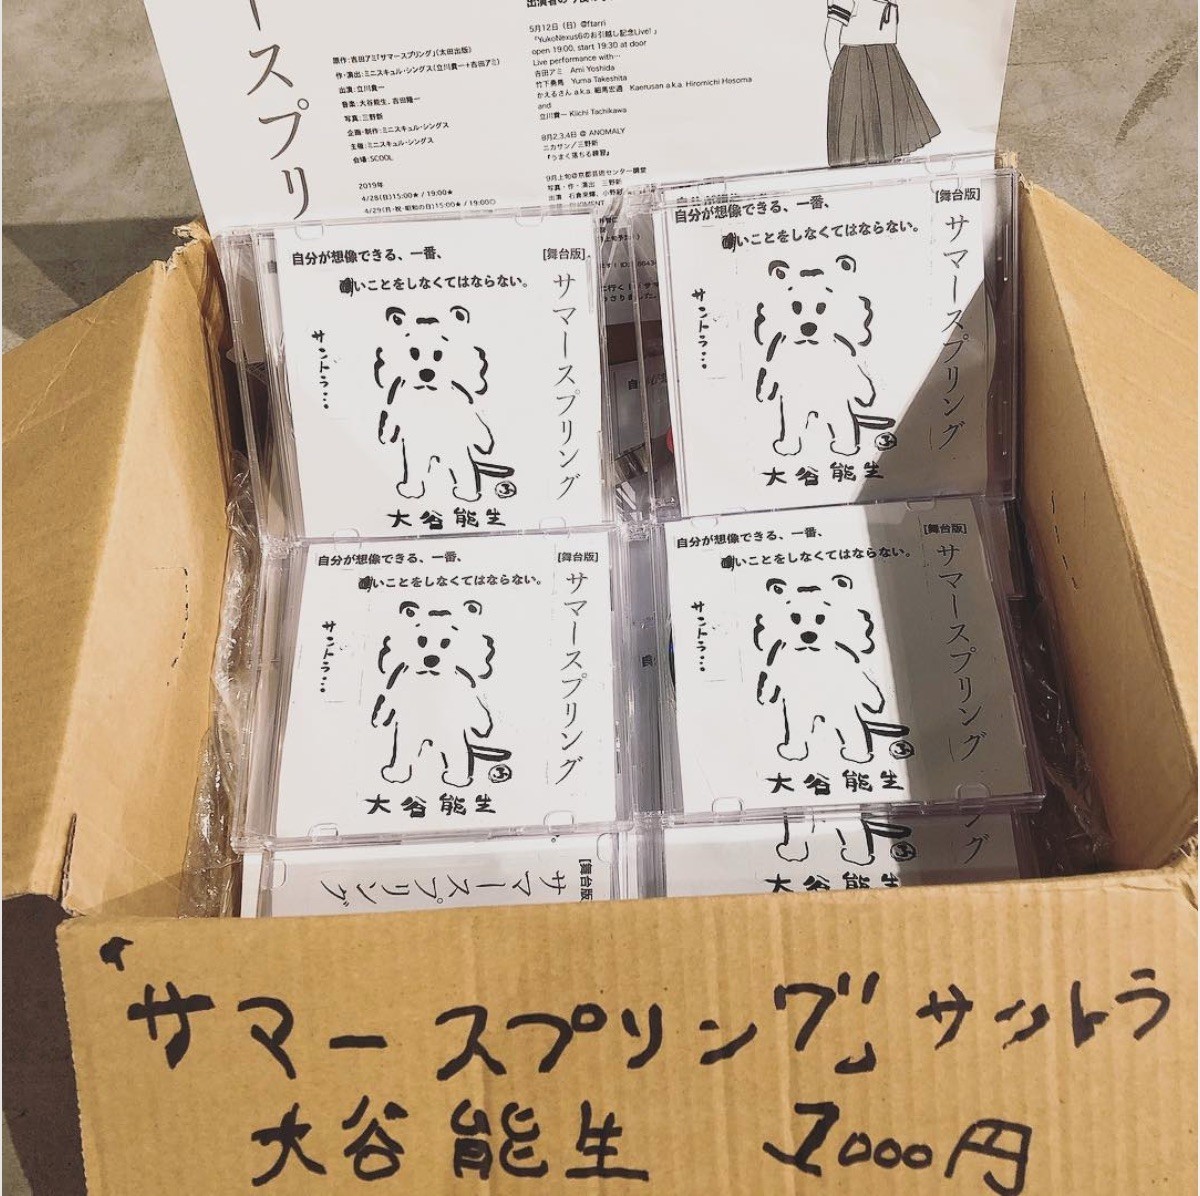 ースプリ
原作：吉田アミ「サマースプリング」（太田出版）
作・演出：ミニスキュル・シングス（立川貴一＋吉田アミ）
出演：立川貴一
音楽：大谷能生、吉田隆一
写真：三野新
企画・制作：ミニスキュル・シングス
主催：ミニスキュル・シングス
会場：SCOOL
2019年
4/28（日）15:00★ / 19:00★
4/29（月・祝・昭和の日）15:00★ / 19:00◎
5月12日（日）@ftarri
「YukoNexus6のお引越し記念Live!」
open 19:00, start 19:30 at door
Live performance with…
吉田アミ Ami Yoshida
竹下勇馬 Yuma Takeshita
かえるさん a.k.a. 細馬宏通 Kaerusan a.k.a. Hiromichi Hosoma
and
立川貴一 Kiichi Tachikawa
8月2,3,4日 @ ANOMALY
ニカサン／三野新
『うまく落ちる練習』
9月上旬@京都芸術センター講堂
写真・作・演出 三野新
自分が想像できる、一番、
いことをしなくてはならない。
[舞台版]
サマースプリング
サントラ…
ふ
大谷能生
自分が想像できる、一番、
いことをしなくてはならない。
[舞台版]
サマースプリング
サントラ…
ふ
大谷能生
自分が想像できる、一番、
いことをしなくてはならない。
[舞台版]
サマースプリング
サントラ…
ふ
大谷能生
自分が想像できる、一番、
いことをしなくてはならない。
[舞台版]
サマースプリング
サントラ…
ふ
大谷能生
[舞台版]
サマースプリング
ング
ふ
大谷能生
「サマースプリング」サントラ
大谷能生 1000円